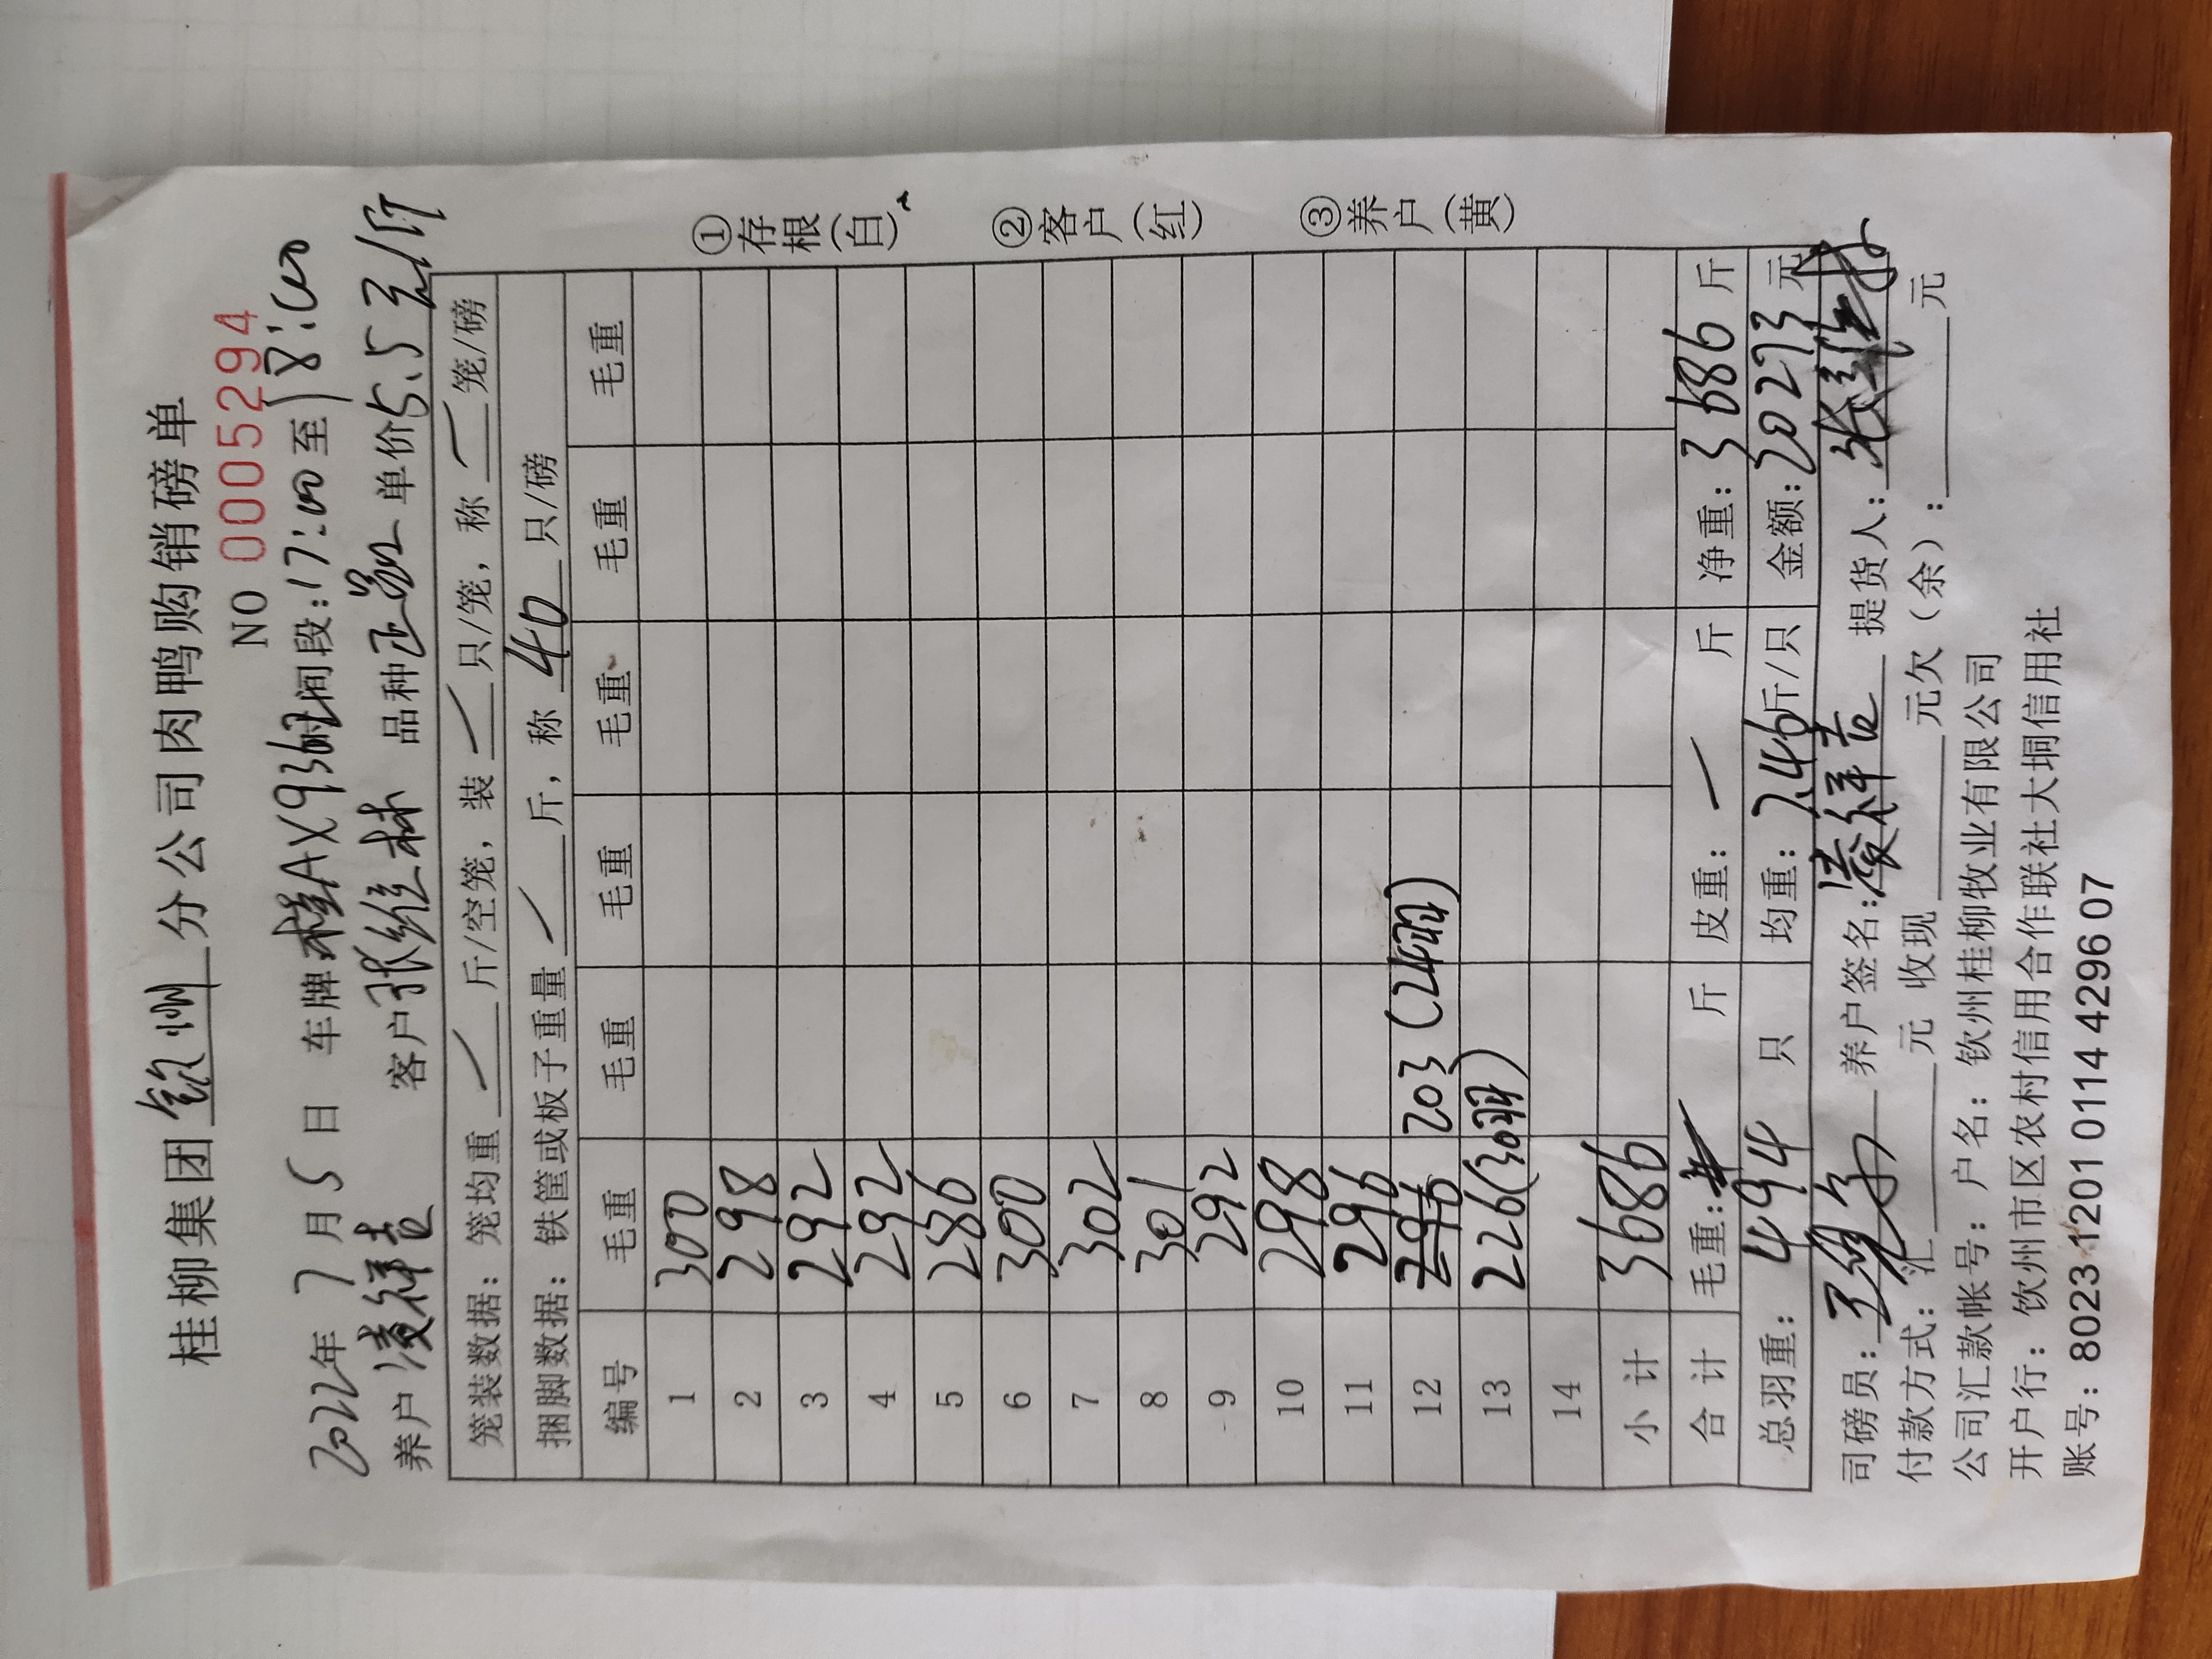 桂柳集团 钦州 分公司肉鸭购销磅单
NO 0005294
2022年 7 月 5 日 车牌 桂AX93 时间段:17:00 至 18:00
养户 凌祥吉 客户 张维林 品种 单价 5.5 元/斤
笼装数据: 笼均重 / 斤/空笼, 装 / 只/笼, 称 / 笼/磅
捆脚数据: 铁筐或板子重量 / 斤, 称 40 只/磅
编号 毛重 毛重 毛重 毛重 毛重 毛重
1 300
2 298
3 292
4 292
5 286
6 300
7 302
8 301
9 292
10 298
11 296
12 296 203 (24羽)
13 226 (30羽)
14
小 计 3686
合 计 毛重: 斤 皮重: / 斤 净重: 3686 斤
总羽重: 494 只 均重: 7.46 斤/只 金额: 20273 元
司磅员: 养户签名: 凌祥吉 提货人: 张维林
付款方式: 汇 元 收现 元欠(余): 元
公司汇款帐号: 户名: 钦州桂柳牧业有限公司
开户行: 钦州市区农村信用合作联社大垌信用社
账号: 8023 1201 0114 4296 07
①存根(白)
②客户(红)
③养户(黄)